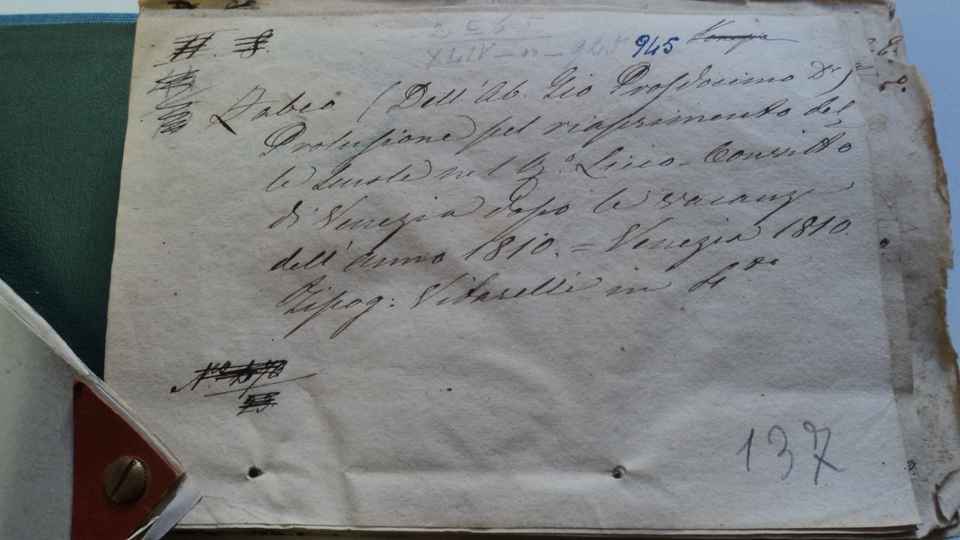 H. S. 945 Venezia
Zabeo (Dell'Ab. Gio Prosdocimo Dr.
Prolusione pel riaprimento del
le Scuole nel R.º Liceo-Convitto
di Venezia dopo le vacanze
dell'anno 1810. = Venezia 1810.
Tipog: Vitarelli in 4to
137